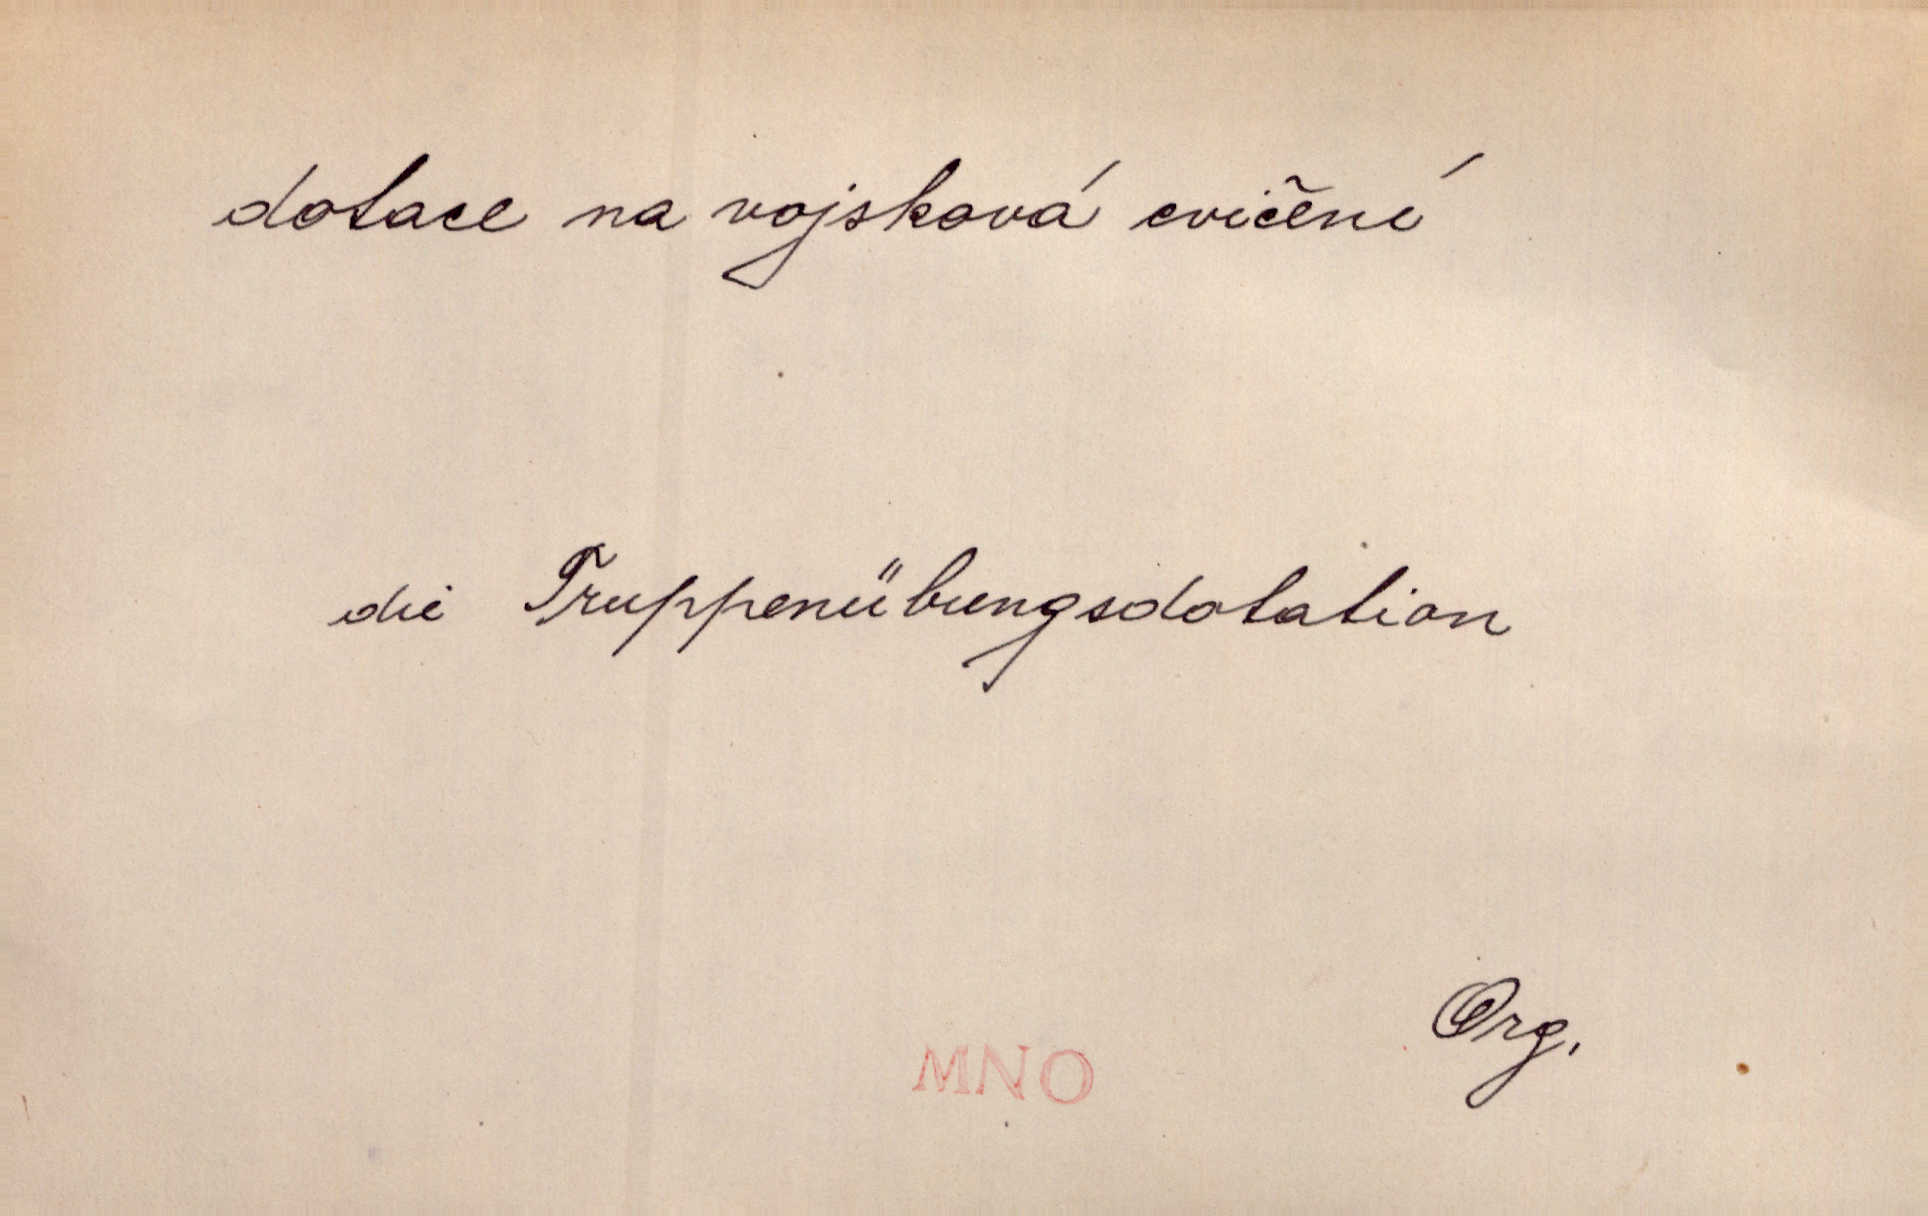 dotace na vojsková cvičení
die Truppenübungsdotation
Org.
MNO